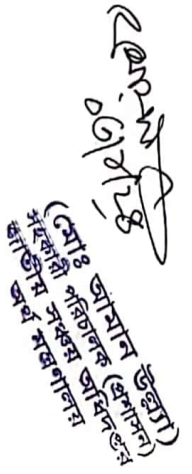 (মোঃ আমান উল্লাহ)
সহকারী পরিচালক (প্রশাসন)
জাতীয় সঞ্চয় অধিদপ্তর
অর্থ মন্ত্রণালয়